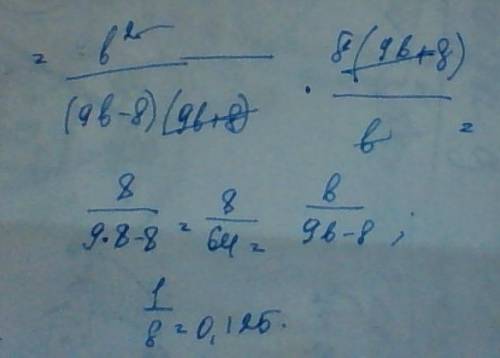 = b² / (9b-8)(9b+8) · 8(9b+8) / b =
8 / 9·8-8 = 8 / 64 = b / 9b-8 ;
1 / 8 = 0,125.